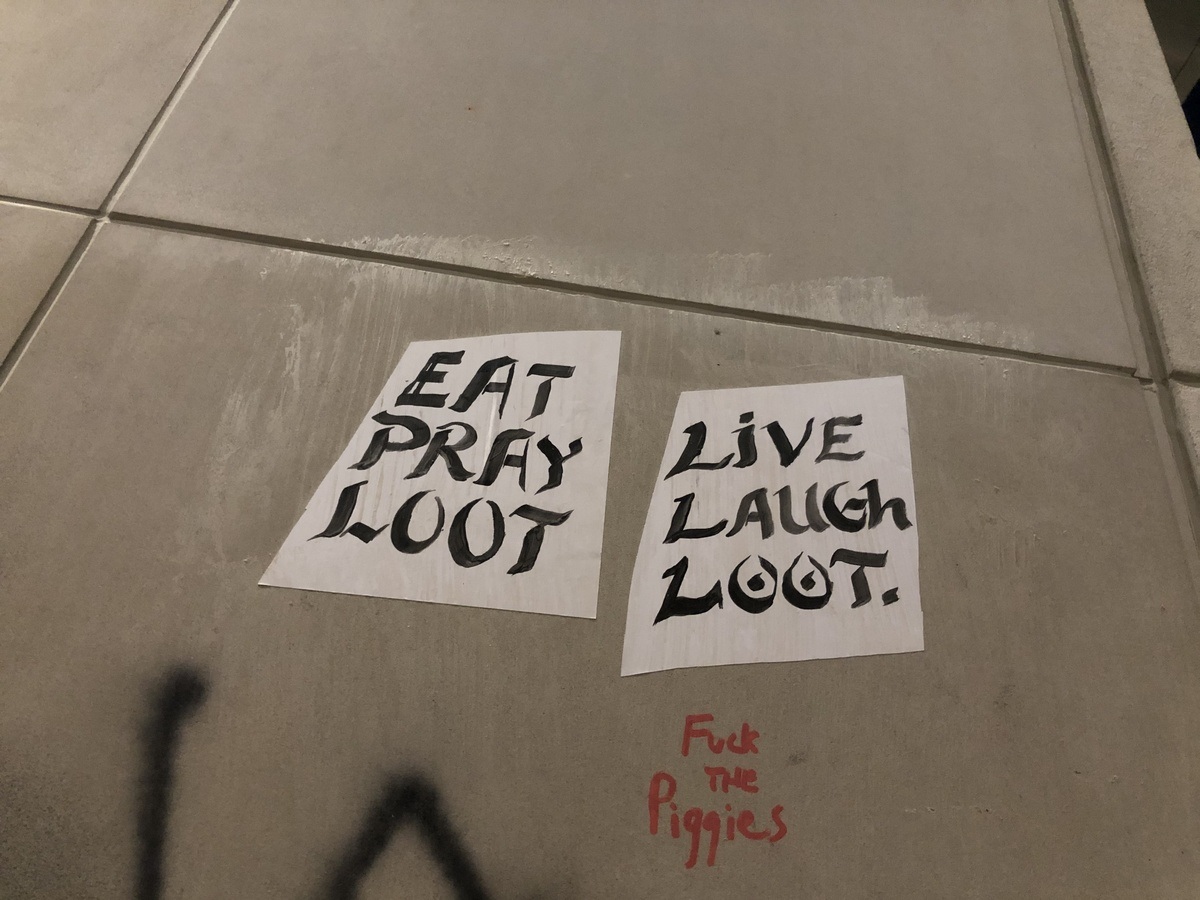 EAT
PRAY
LOOT
LiVE
LAUGh
LOOT.
Fuck
THE
Piggies